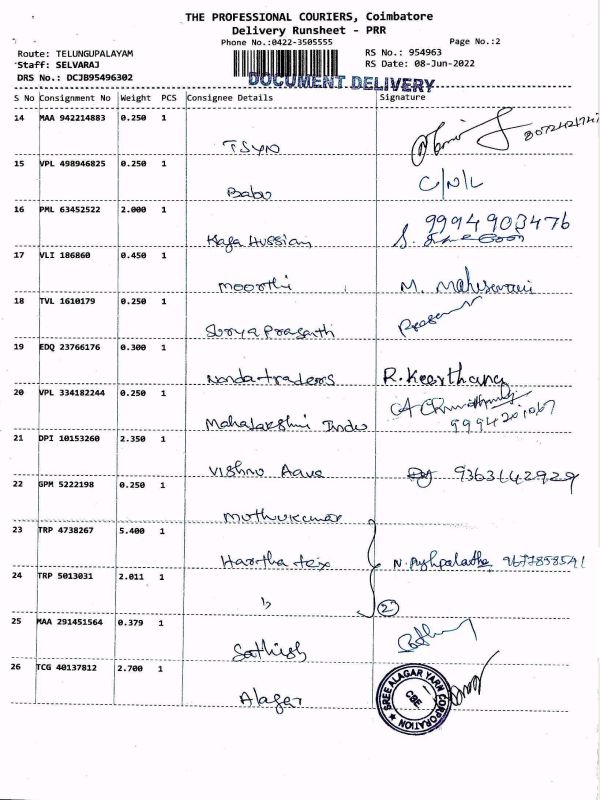 THE PROFESSIONAL COURIERS, Coimbatore
Delivery Runsheet - PRR
Phone No.:0422-3505555 Page No.:2
Route: TELUNGUPALAYAM RS No.: 954963
Staff: SELVARAJ RS Date: 08-Jun-2022
DRS No.: DCJB95496302 DOCUMENT DELIVERY
S No Consignment No Weight PCS Consignee Details Signature
14 MAA 942214883 0.250 1
TSYN
15 VPL 498946825 0.250 1
Babu C/N/L
16 PML 63452522 2.000 1 9994903476
Kaja Hussian
17 VLI 186860 0.450 1
moorthi M. Maheswari
18 TVL 1610179 0.250 1
Surya Prasanth
19 EDQ 23766176 0.300 1
Nanda traders R. Keerthana
20 VPL 334182244 0.250 1
Mahalakshmi Indus 9994201067
21 DPI 10153260 2.350 1
Vishnu Aavs 9363142929
22 GPM 5222198 0.250 1
muthukumar
23 TRP 4738267 5.400 1
Haritha tex N. Pushpalatha 9677858541
24 TRP 5013031 2.011 1
2
25 MAA 291451564 0.379 1
Sathish
26 TCG 40137812 2.700 1
Alagar SREE ALAGAR YARN CORPORATION CBE